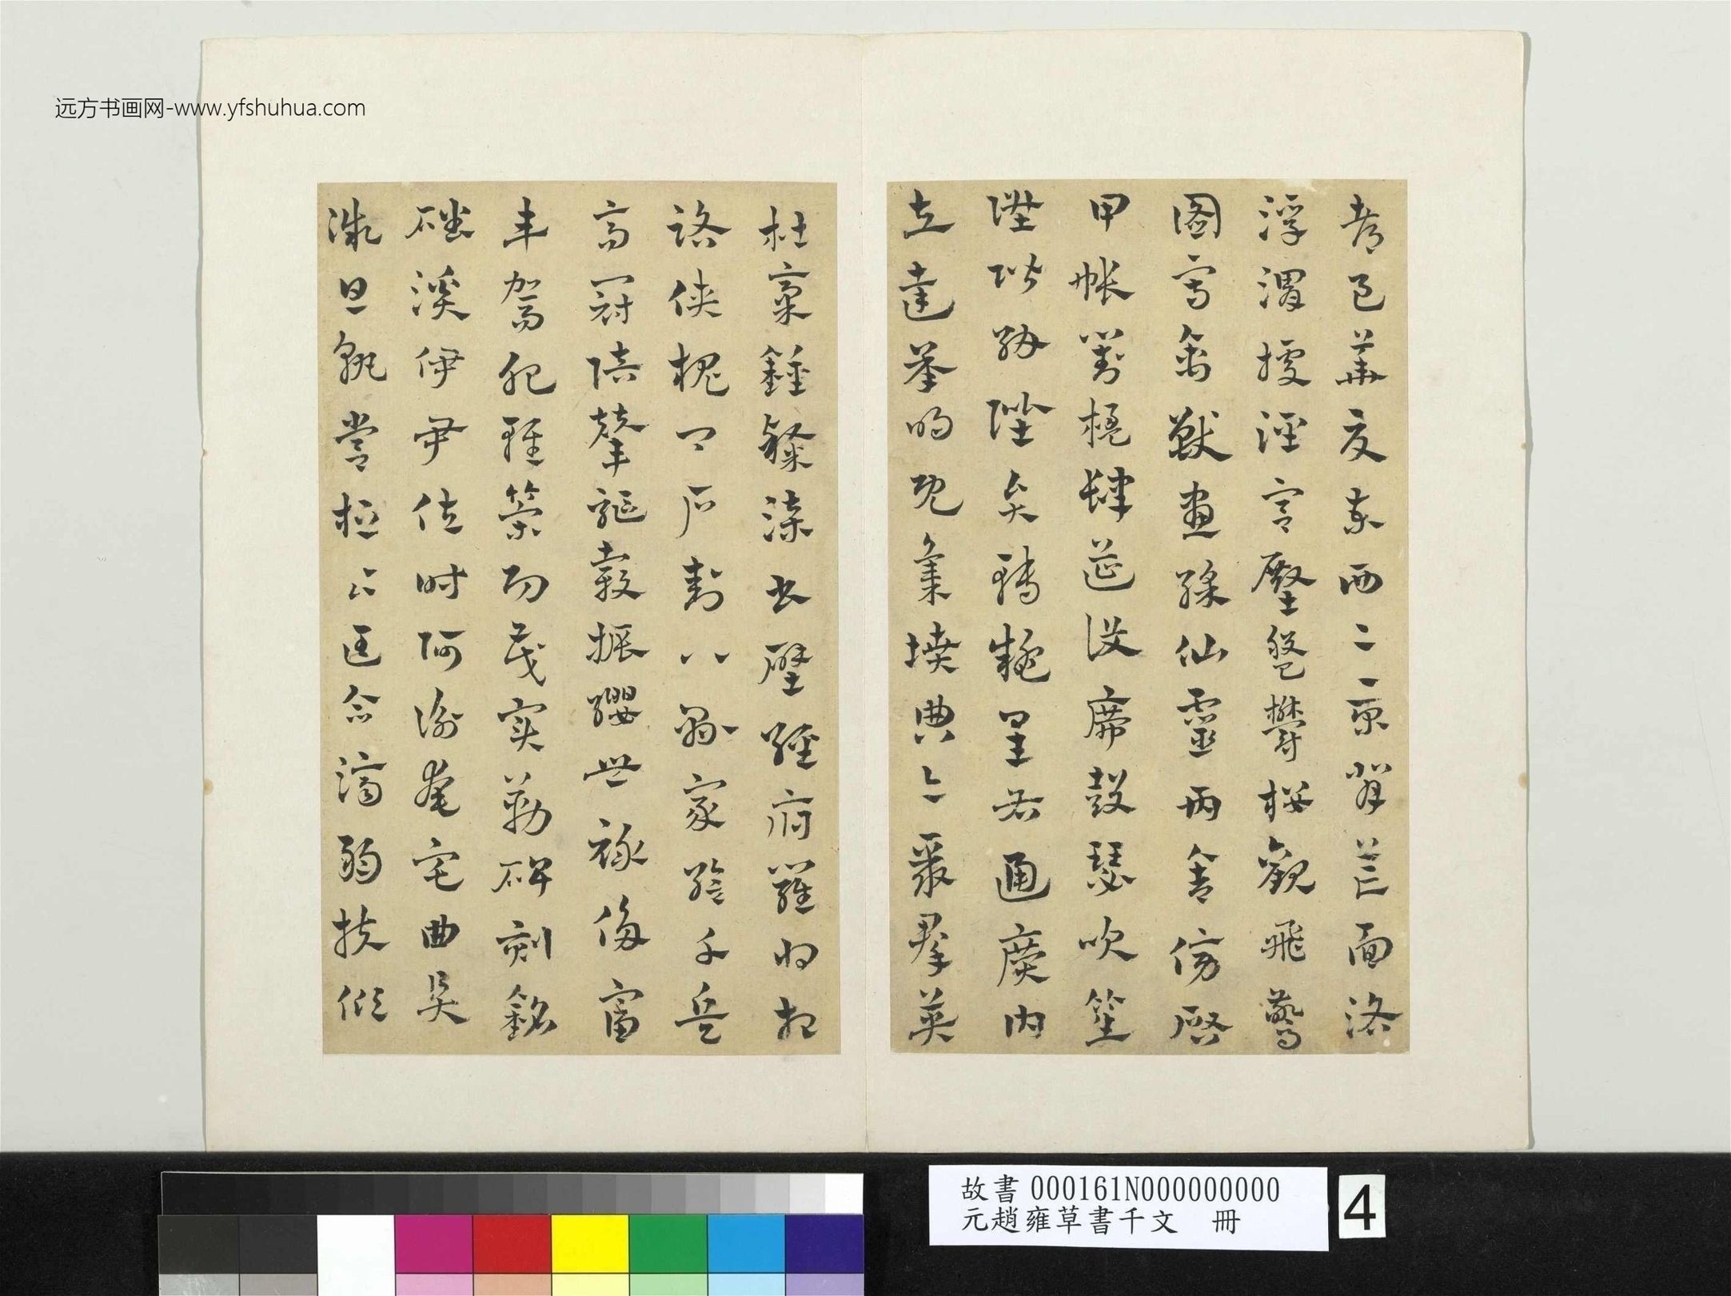 远方书画网-www.yfshuhua.com
都邑華夏東西二京背芒面洛
浮渭據涇宮殿盤鬱樓觀飛驚
圖寫禽獸畫綵仙靈丙舍傍啟
甲帳對楹肆筵設席鼓瑟吹笙
陞階納陛弁轉疑星右通廣內
左達承明既集墳典亦聚羣英
杜稾鍾隸漆書壁經府羅將相
路俠槐卿戶封八縣家給千兵
高冠陪輦驅轂振纓世祿侈富
車駕肥輕策功茂實勒碑刻銘
磻溪伊尹佐時阿衡奄宅曲阜
微旦孰營桓公匡合濟弱扶傾
故書 000161N000000000
元趙雍草書千文 冊
4